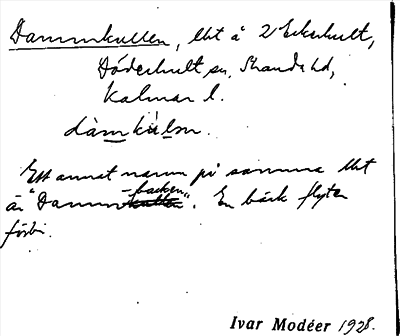 Dammkullen, lht å 2 Eckerhult,
Döderhult sn, Stranda hd,
Kalmar l.
dàmkùlɘn.
Ett annat namn på samma lht
är "Damm-backen". En bäck flyter
förbi.
Ivar Modéer 1928.